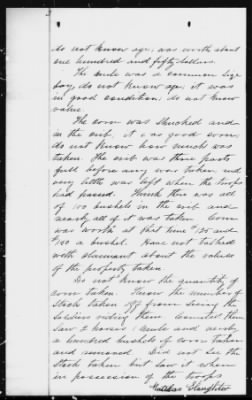 do not know age, was worth about
one hundred and fifty dollars.
The mule was a common size
boy, do not know age, it was
in good condition, do not know
value
The corn was shucked and
in the crib, it was good corn
do not know how much was
taken. The crib was three parts
full before any was taken and
very little was left when the troops
had passed. Think there was all
of 100 bushels in the crib and
nearly all of it was taken. Corn
was worth at that time
$1.00 a bushel. Have not talked
with claimant about the values
of the property taken.
Do not know the quantity of
corn taken. Know the number of
Stock taken off from seeing the
soldiers riding them. Counted them
Saw 2 horses 1 mule and nearly
a hundred bushels of corn taken
and removed. Did not see the
stock taken but saw it when
in possession of the troops
Slaughter